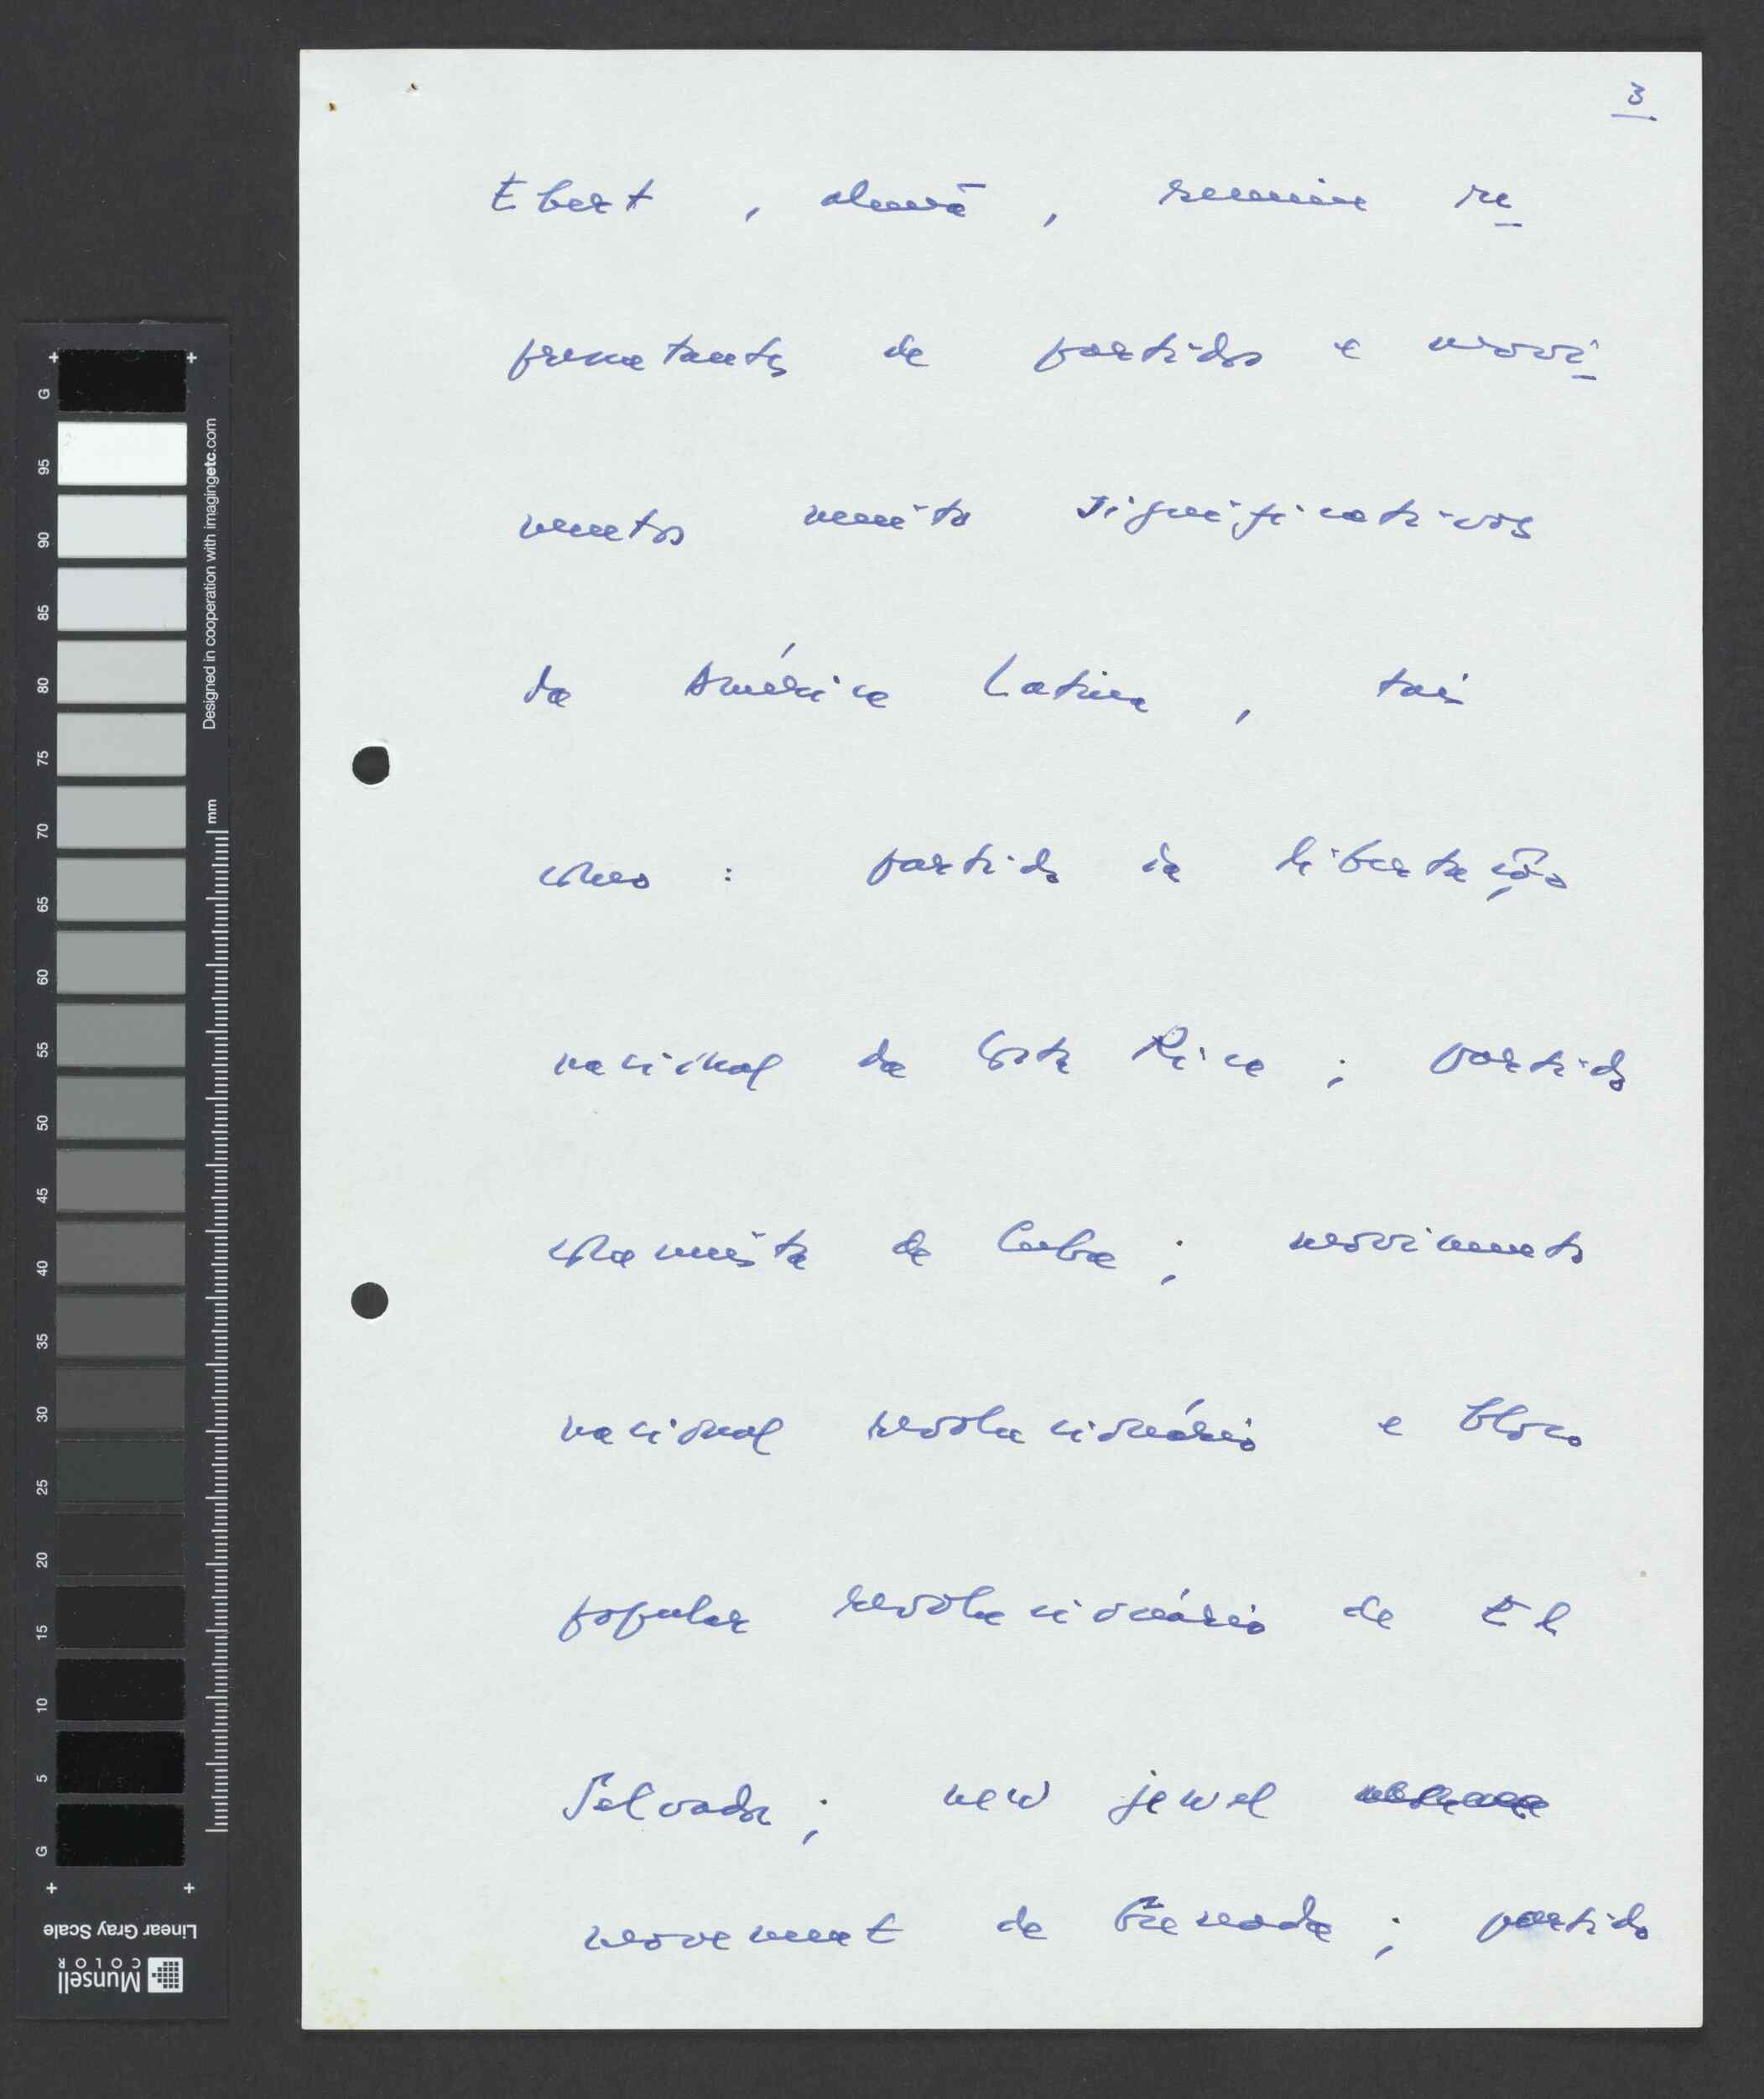 3
Ebert, alemã, reunia re
presentantes de partidos e movi
mentos muito significativos
da América Latina, tais
como: partido da libertação
nacional da Costa Rica; partido
comunista de Cuba; movimento
nacional revolucionário e bloco
popular revolucionário de El
Salvador; new jewel
movement de Grenada; partido
G
95
90
85
80
75
70
65
60
55
50
45
40
35
30
25
20
15
10
5
G
Designed in cooperation with imagingetc.com
mm
Linear Gray Scale
Munsell
COLOR